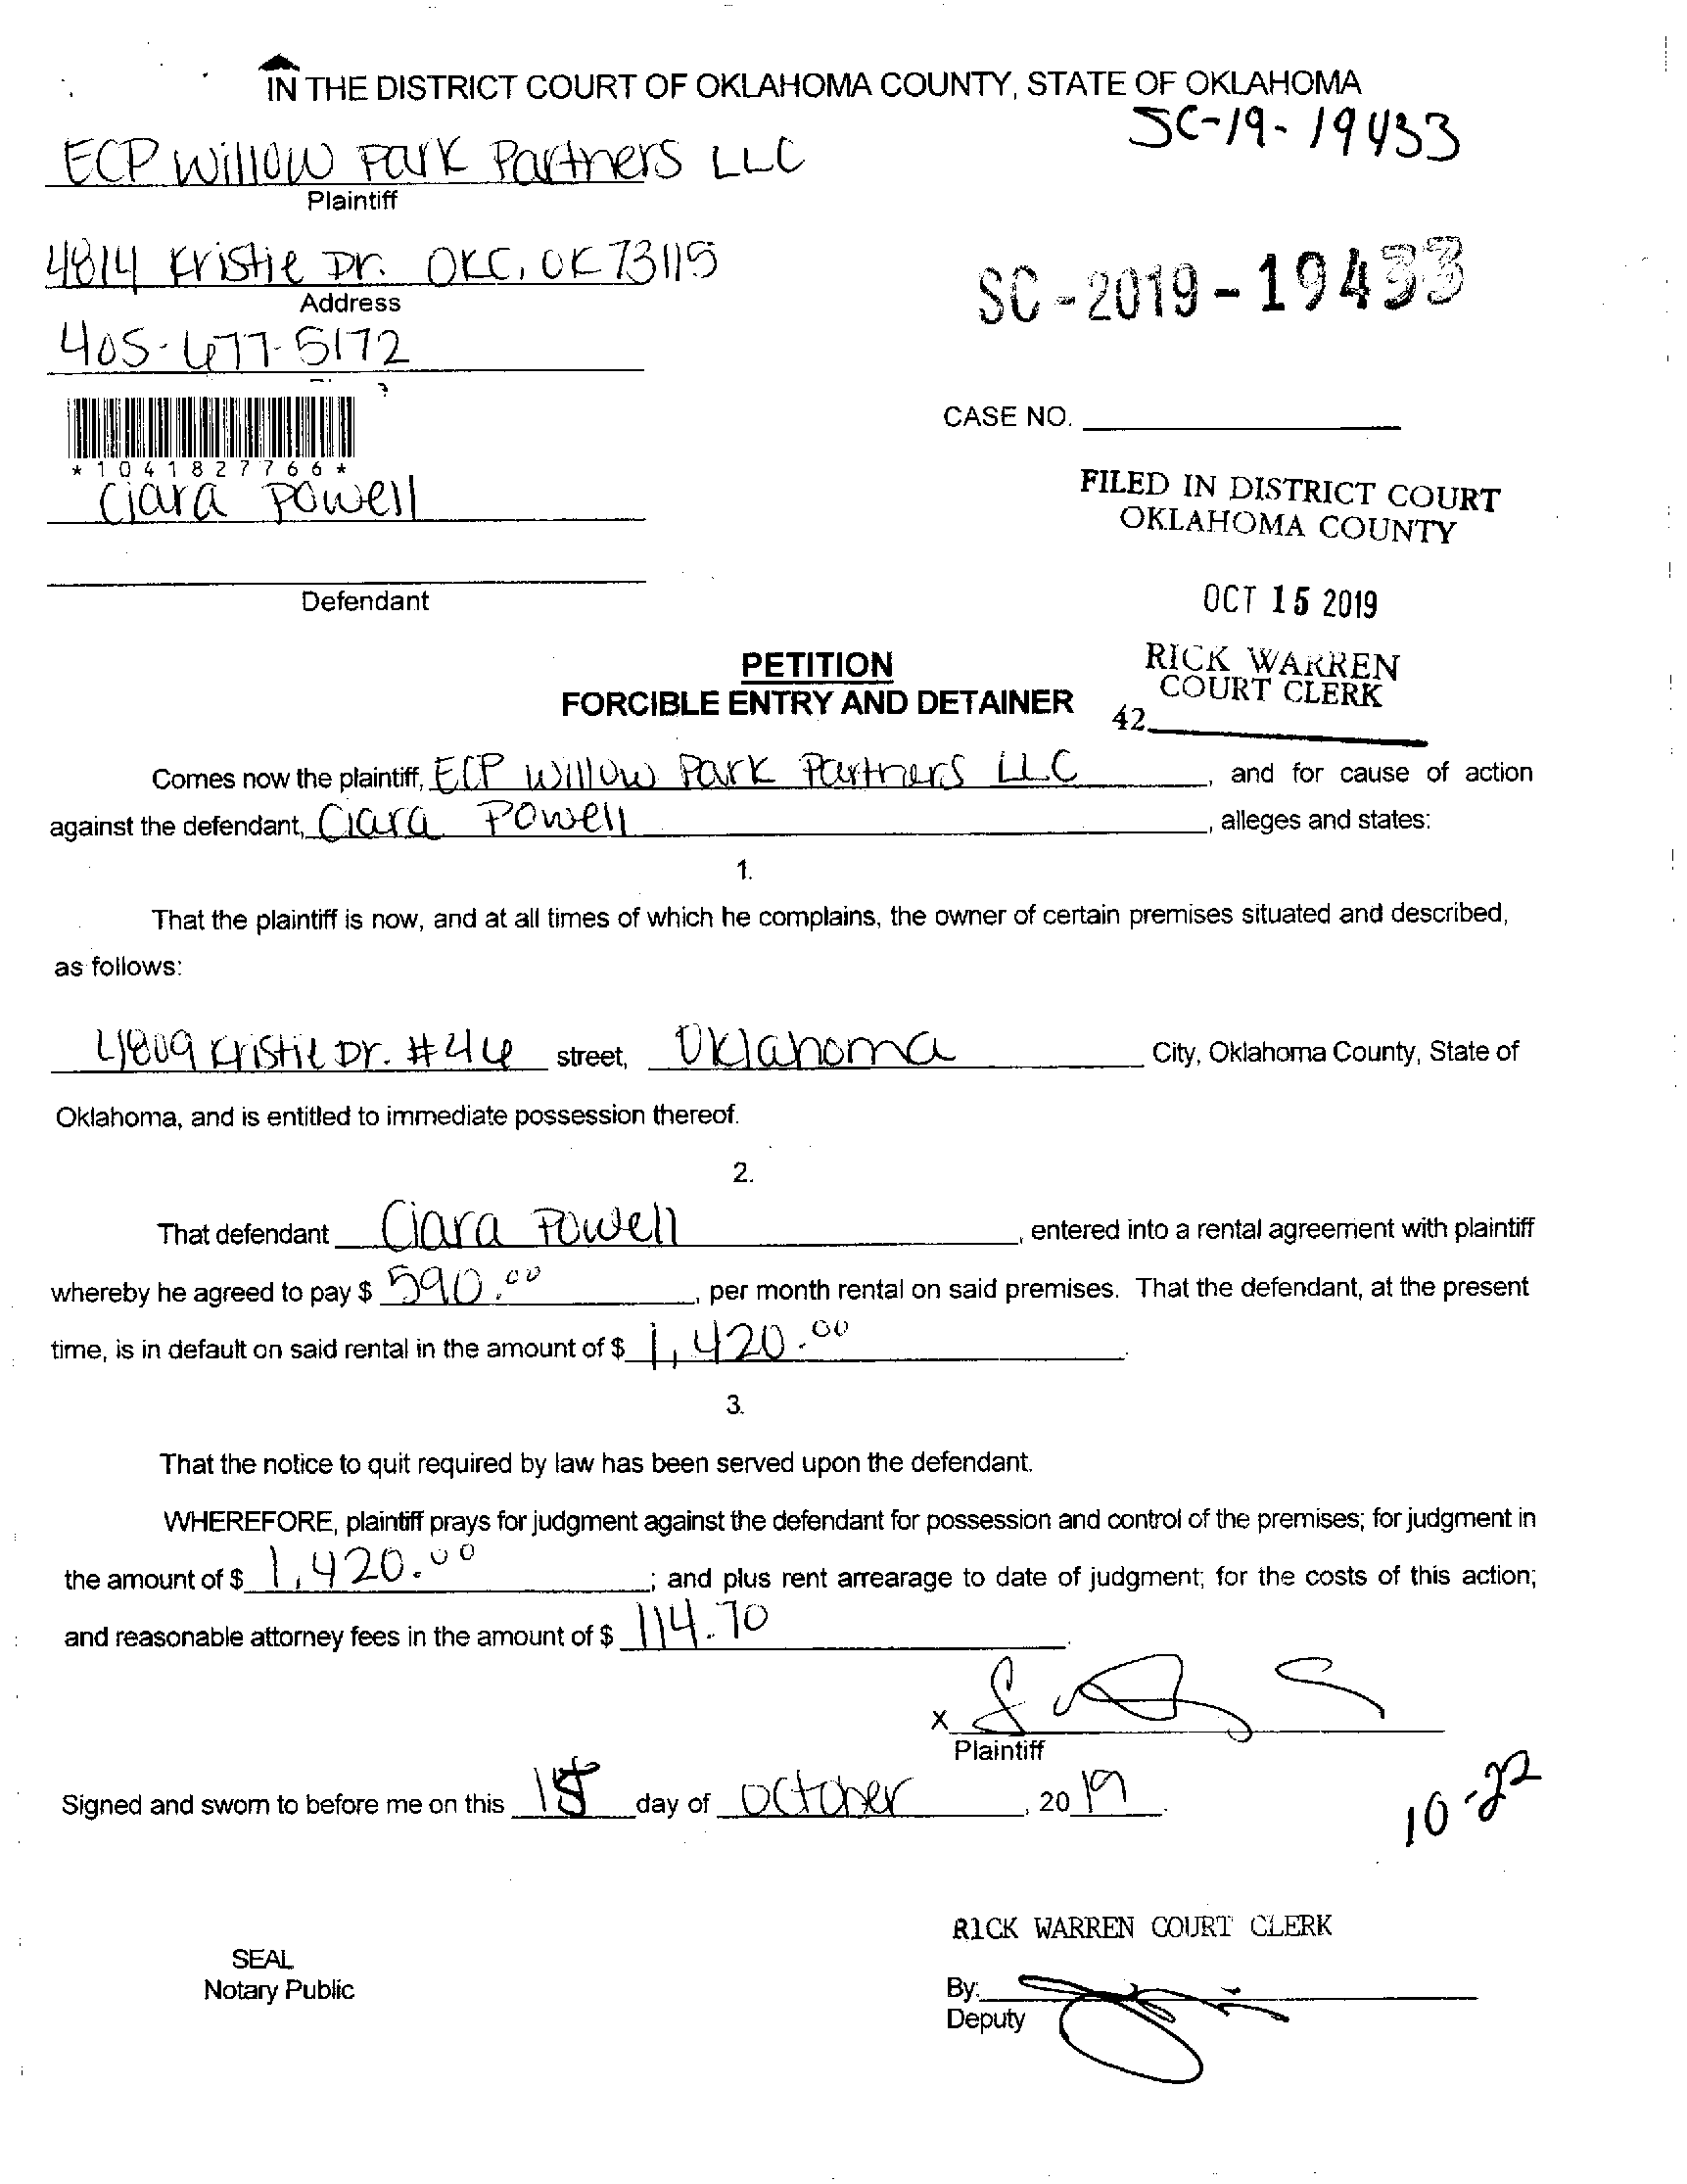 IN THE DISTRICT COURT OF OKLAHOMA COUNTY, STATE OF OKLAHOMA
SC-19-19433
ECP Willow Park Partners LLC
Plaintiff
4814 Kristie Dr. OKC, OK 73115
Address
SC-2019-19433
405-677-5172
CASE NO.
*1041827766*
Ciara Powell
FILED IN DISTRICT COURT
OKLAHOMA COUNTY
Defendant
OCT 15 2019
PETITION
FORCIBLE ENTRY AND DETAINER
RICK WARREN
COURT CLERK
42
Comes now the plaintiff, ECP Willow Park Partners LLC, and for cause of action
against the defendant, Ciara Powell, alleges and states:
1.
That the plaintiff is now, and at all times of which he complains, the owner of certain premises situated and described,
as follows:
4809 Kristie Dr. #46 street, Oklahoma City, Oklahoma County, State of
Oklahoma, and is entitled to immediate possession thereof.
2.
That defendant Ciara Powell, entered into a rental agreement with plaintiff
whereby he agreed to pay $ 590.00, per month rental on said premises. That the defendant, at the present
time, is in default on said rental in the amount of $ 1,420.00.
3.
That the notice to quit required by law has been served upon the defendant.
WHEREFORE, plaintiff prays for judgment against the defendant for possession and control of the premises; for judgment in
the amount of $ 1,420.00; and plus rent arrearage to date of judgment; for the costs of this action;
and reasonable attorney fees in the amount of $ 114.70.
X
Plaintiff
Signed and sworn to before me on this 15 day of October, 2019.
10-22
RICK WARREN COURT CLERK
SEAL
Notary Public
By:
Deputy